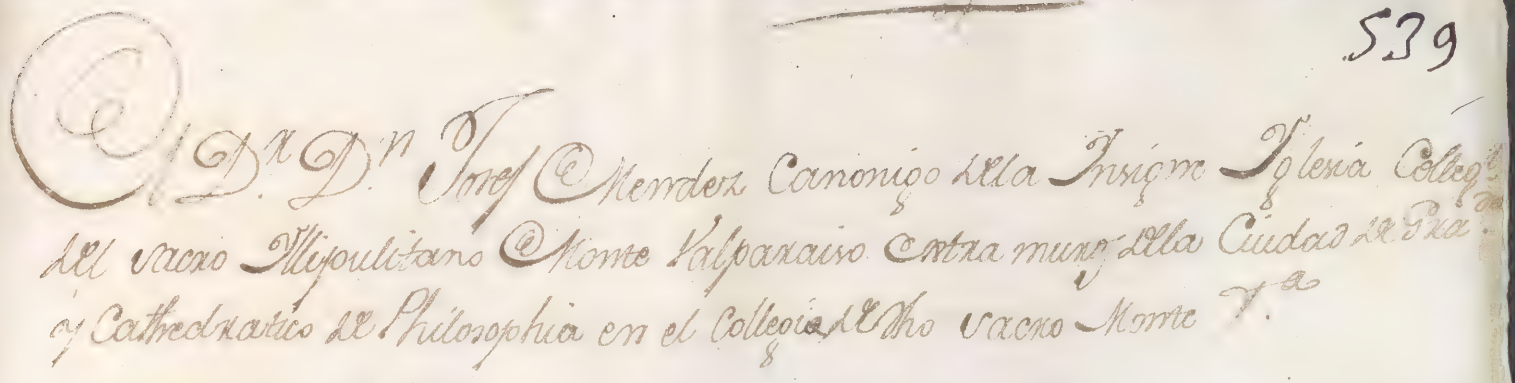 539
El D.r D.n Josef Mendez Canonigo dela Insigne Yglesia Colleg.l
del sacro Illipulitano Monte Valparaiso extra muros dela Ciudad de Gra.da
y Cathedratico de Philosophia en el Collegio de dho sacro Monte